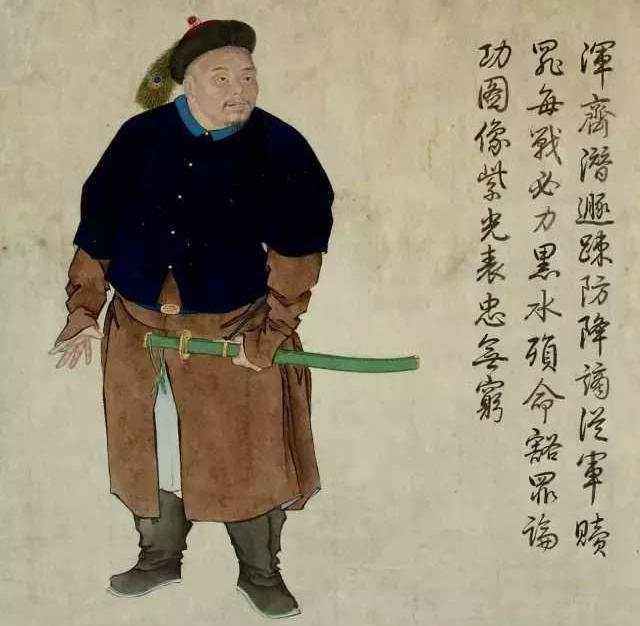 渾齊潛遯踈防降謫從軍贖
罪每戰必力黑水殞命豁罪論
功圖像紫光表忠無窮